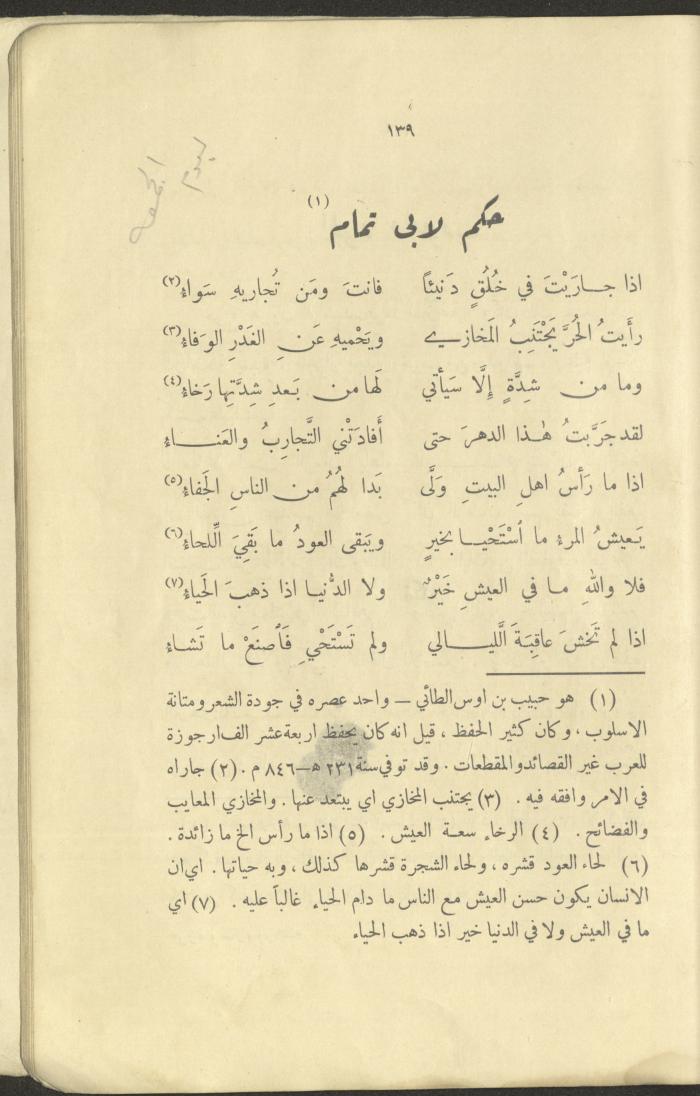 ١٣٩
يوم
الجمعه
حكم لابي تمام (١)
اذا جـارَيْتَ في خُلُقٍ دَنيئاً فانتَ ومَن تُجاريهِ سَواءُ (٢)
رأَيتُ الحُرَّ يَجْتَنِبُ المَخازي ويَحْميهِ عَنِ الغَدْرِ الوَفاءُ (٣)
وما من شِدَّةٍ إِلَّا سَيأتي لَها من بَعدِ شِدَّتِها رَخاءُ (٤)
لقد جَرَّبتُ هٰذا الدهرَ حتى أَفادَتْني التَّجارِبُ والعَنـاءُ
اذا ما رَأسُ اهلِ البيتِ وَلَّى بَدا لهُمُ من الناسِ الجَفاءُ (٥)
يَعيشُ المرءُ ما ٱسْتَحْيـا بخيرٍ ويَبقى العودُ ما بَقِيَ الِّلحاءُ (٦)
فلا واللهِ مـا في العيشِ خَيْرٌ ولا الدُّنيـا اذا ذهبَ الحَياءُ (٧)
اذا لم تَخشَ عاقِبَةَ الَّليـالي ولم تَسْتَحْيِ فَٱصنَعْ ما تَشـاءُ
(١) هو حبيب بن اوس الطائي — واحد عصره في جودة الشعر ومتانة
الاسلوب ، وكان كثير الحفظ ، قيل انه كان يحفظ اربعة عشر الف ارجوزة
للعرب غير القصائد والمقطعات . وقد توفي سنة ٢٣١ هـ — ٨٤٦ م . (٢) جاراه
في الامر وافقه فيه . (٣) يجتنب المخازي اي يبتعد عنها . والمخازي المعايب
والفضائح . (٤) الرخاء سعـة العيش . (٥) اذا ما رأس الخ ما زائدة .
(٦) لحاء العود قشره ، ولحاء الشجرة قشرها كذلك ، وبه حياتها . اي ان
الانسان يكون حسن العيش مع الناس ما دام الحياء غالباً عليه . (٧) اي
ما في العيش ولا في الدنيا خير اذا ذهب الحياء